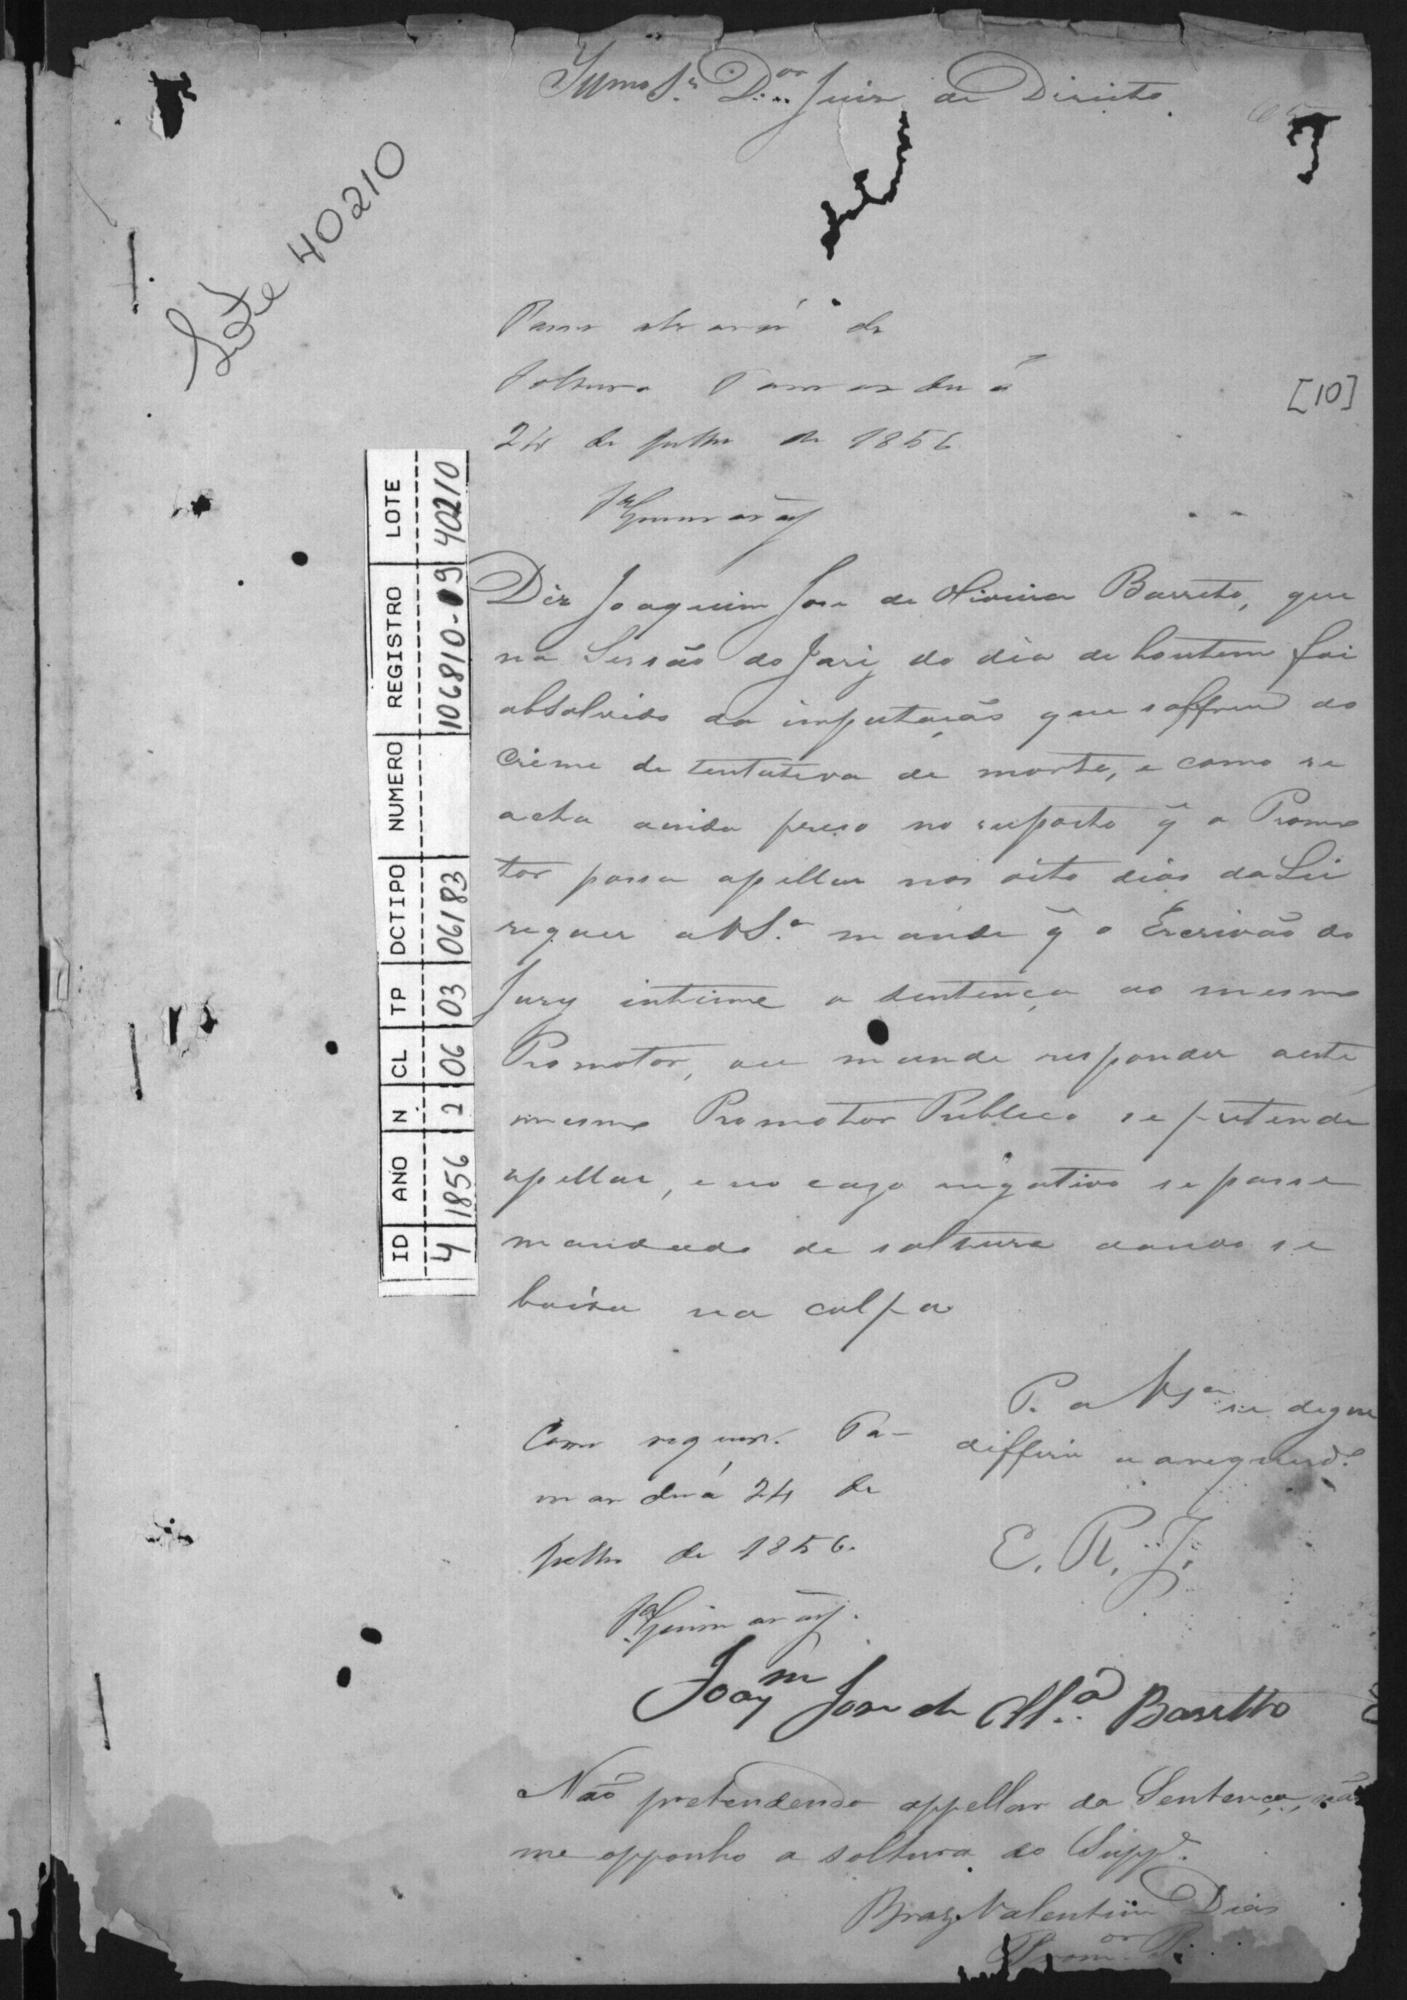 Illmo Sr. Dor. Juiz de Direito
Lote 40210
Passe alvará de
soltura Tamanduá
24 de Julho de 1856
[10]
Sa Guimarães
Diz Joaquim Jose de Oliveira Barreto, que
na Sessão do Jury do dia de hontem foi
absolvido da imputação que soffreu do
crime de tentativa de morte, e como se
acha ainda preso no suposto q̃ o Promo
tor possa apellar nos oito dias da Lei
requer a V Sa. mande q̃ o Escrivão do
Jury intime a sentença ao mesmo
Promotor, ou mande responder a este
mesmo Promotor Publico se pretende
apellar, e no cazo negativo se passe
mandado de soltura dando se
baixa na culpa
P. a V Sa se digne
differir
Como requer. Ta-
manduá 24 de
Julho de 1856.
E. R. J.
Sa Guimarães.
Joaqm Jose de Olra. Barretto
Não pretendendo appellar da Sentença, não
me opponho a soltura do Suppe.
Braz Valentim Dias
Promor P.
ID ANO N CL TP DCTIPO NUMERO REGISTRO LOTE
4 1856 2 06 03 06183 106810-09 40210